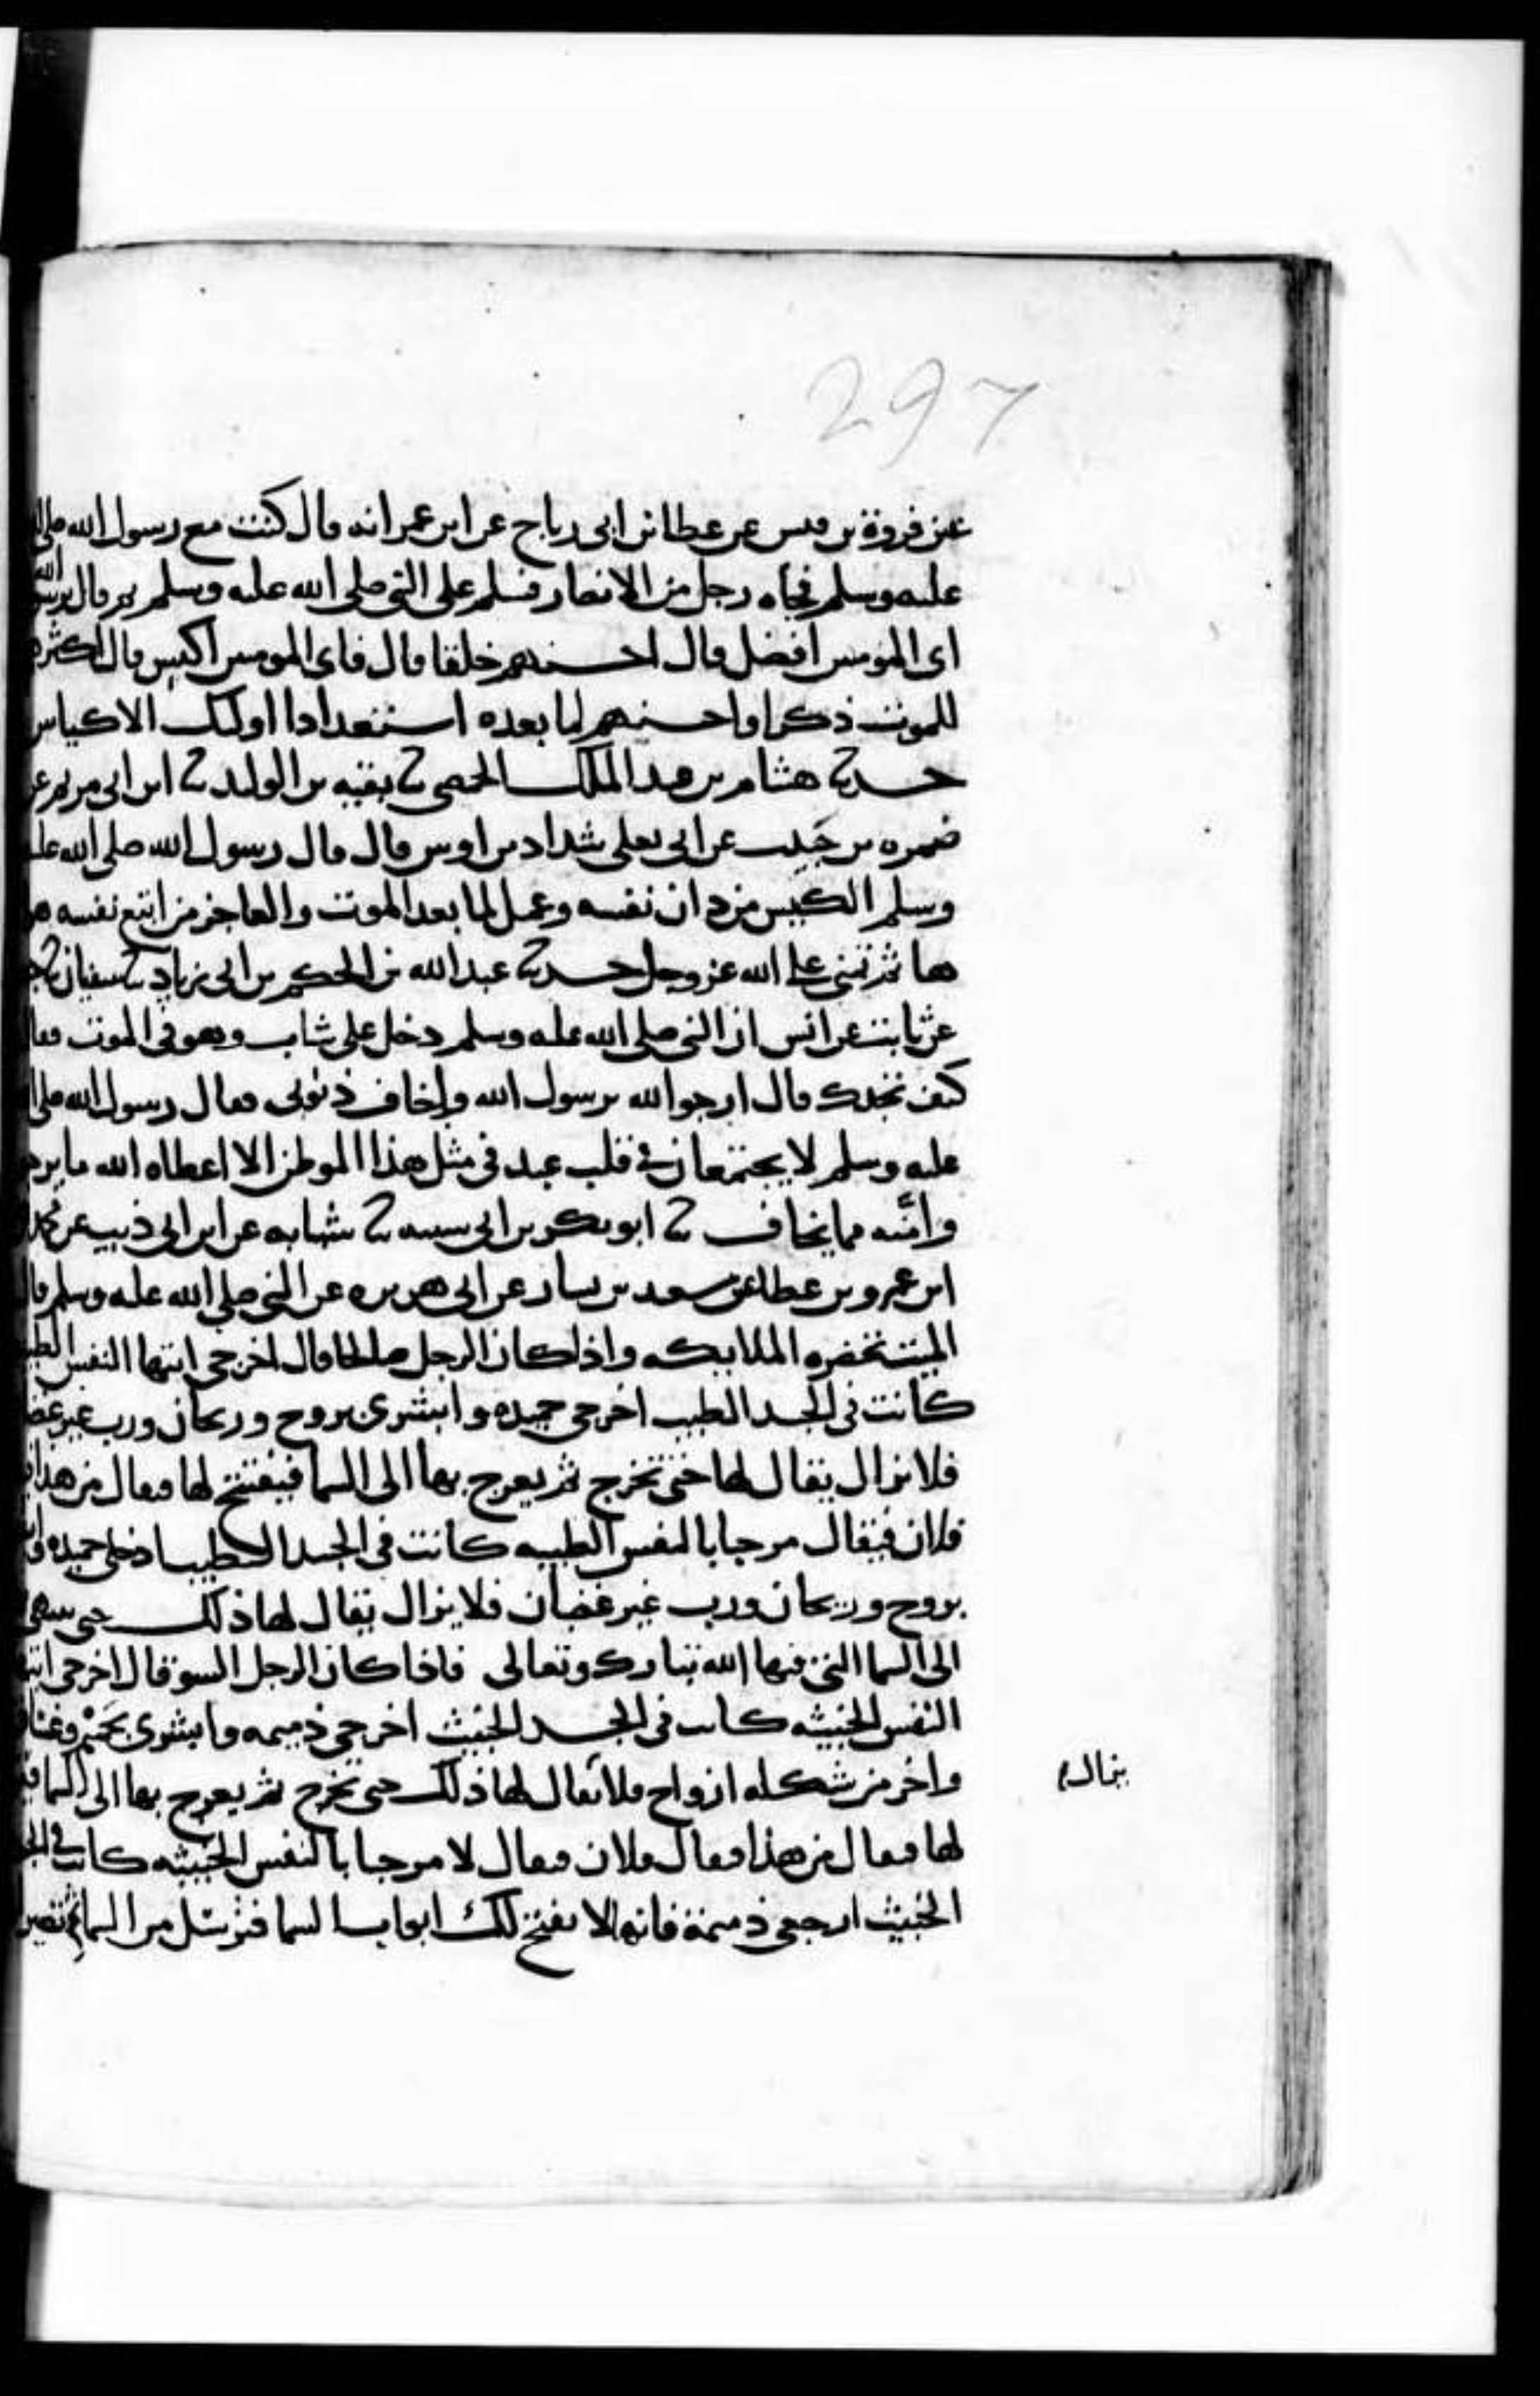 297
عن فروة بن قيس عن عطا بن ابى رباح عن ابن عمر انه قال كنت مع رسول الله صلى الله
عليه وسلم فجاه رجل من الانصار فسلم على النبى صلى الله عليه وسلم ثم قال يرسول الله
اى المومنين افضل قال احسنهم خلقا قال فاى المومنين اكيس قال اكثرهم
للموت ذكرا واحسنهم لما بعده استعدادا اولئك الاكياس
حدثنا هشام بن عبد الملك الحمصى ثنا بقيه بن الوليد ثنا ابن ابى مريم عن
ضمره بن حَبِيب عن ابى يعلى شداد بن اوس قال قال رسول الله صلى الله عليه
وسلم الكيس من دان نفسه وعمل لما بعد الموت والعاجز من اتبع نفسه هو
ها ثم تمنى على الله عز وجل حدثنا عبد الله بن الحكم بن ابى زياد ثنا سفيان ثنا
عن ثابت عن انس ان النبى صلى الله عليه وسلم دخل على شاب وهو فى الموت فقال
كيف تجدك قال ارجوا الله يرسول الله واخاف ذنوبى فقال رسول الله صلى الله
عليه وسلم لا يجتمعان فى قلب عبد فى مثل هذا الموطن الا اعطاه الله ما يرجو
وامّنه مما يخاف ثنا ابو بكر بن ابى شيبه ثنا شبابه عن ابن ابى ذيب عن محمد
ابن عمرو بن عطا عن سعيد بن يسار عن ابى هريره عن النبى صلى الله عليه وسلم قال
الميت تحضره الملايكه واذا كان الرجل صالحا قال اخرجى ايتها النفس الطيبه
كانت فى الجسد الطيب اخرجى حميده وابشرى بروح وريحان ورب غير غضبان
فلا يزال يقال لها حتى تخرج ثم يعرج بها الى السما فيفتح لها فيقال من هذا
فلان فيقال مرحبا بالنفس الطيبه كانت فى الجسد الطيب ادخلى حميده
بروح وريحان ورب غير غضبان فلا يزال يقال لها ذلك حتى ينتهى
الى السما التى فيها الله تبارك وتعالى فاذا كان الرجل السو قال اخرجى ايتها
النفس الخبيثه كانت فى الجسد الخبيث اخرجى ذميمه وابشرى بحَمِيْم وغساق
واخر من شكله ازواج فلا يقال لها ذلك حتى تخرج ثم يعرج بها الى السما
يزال
لها فيقال من هذا فيقال فلان فيقال لا مرحبا بالنفس الخبيثه كانت فى
الخبيث ارجعى ذميمة فانها لا يفتح لك ابواب السما فترسل من السما ثم تصير